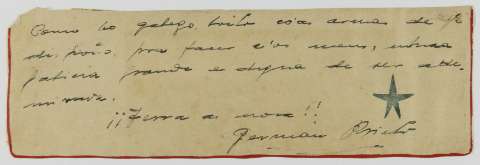 Como bo galego, loito coas armas de
de poio, pra facer c'os meus, unha
Galicia grande e digna de ser ade-
mirada.
¡¡Terra a nosa!!
German Prieto